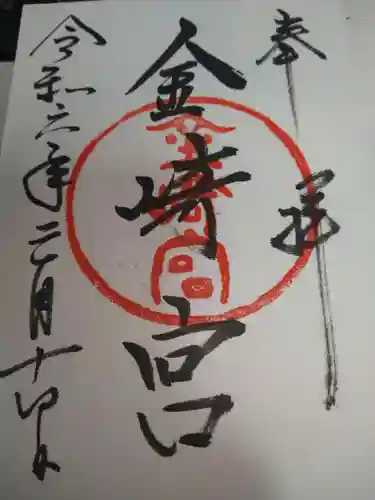 奉拝
金崎宮
金崎宮
令和六年二月十四日